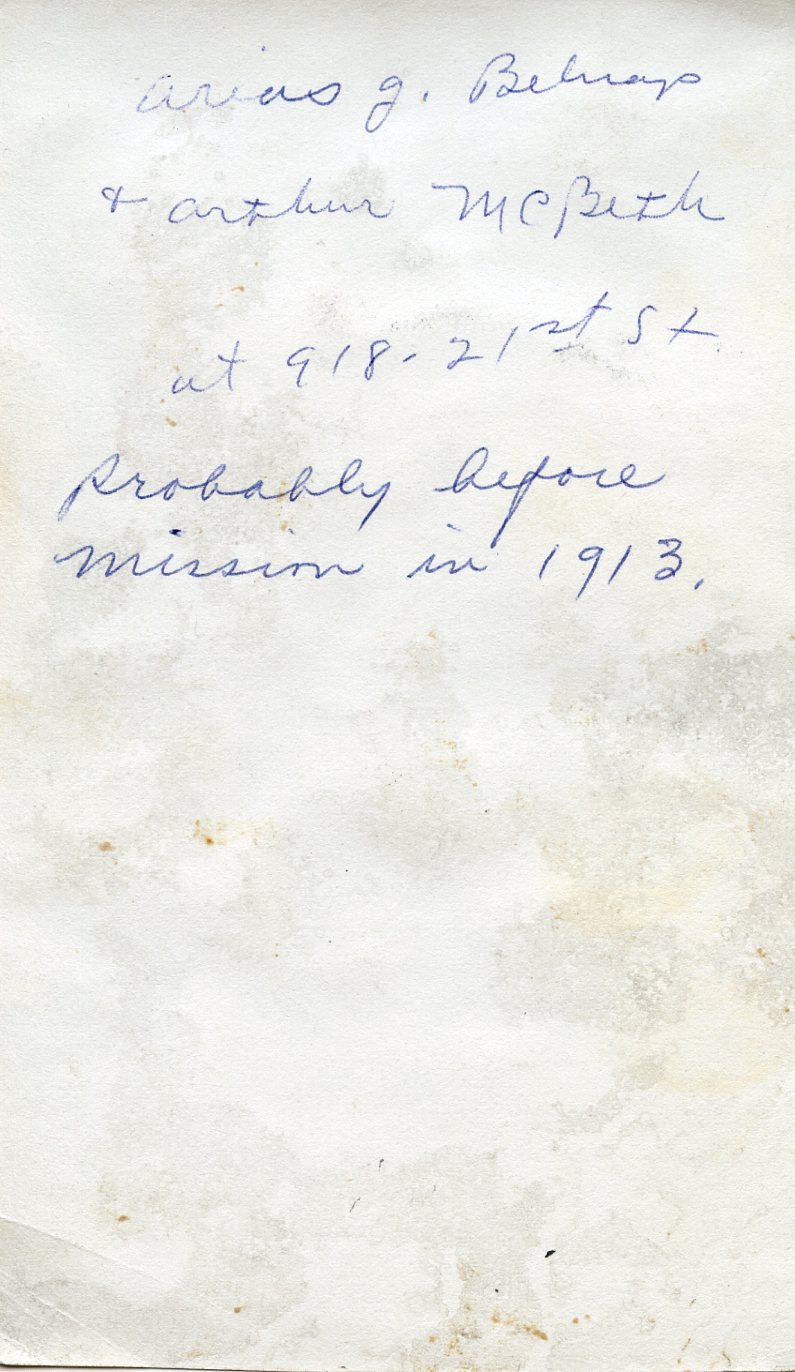 Arias G. Belnap
& Arthur McBeth
at 918-21st St.
Probably before
mission in 1913.